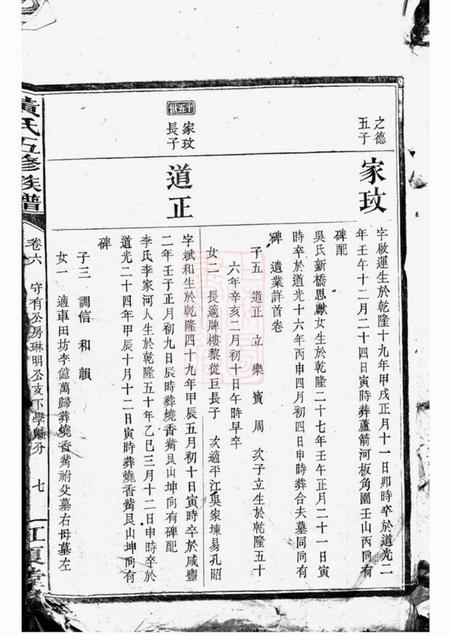 之德
五子
家玟
字啟運生於乾隆十九年甲戌正月十一日卯時卒於道光二
年壬午十二月二十四日寅時葬蘆箭河板角園壬山丙向有
碑配
吳氏新橋思獻女生於乾隆二十七年壬午正月二十一日寅
時卒於道光十六年丙申四月初四日申時葬合夫墓同向有
碑 遺業詳首卷
子五 道正 立 樂 賓 周 次子立生於乾隆五十
六年辛亥二月初十日午時早卒
女二 長適牌樓黎從巨長子 次適平江吳家塅易孔昭
十五世
家玟
長子
道正
字斌和生於乾隆四十九年甲辰五月初十日寅時卒於咸豐
二年壬子正月初九日辰時葬燒香嘴艮山坤向有碑配
李氏李家河人生於乾隆五十年乙巳三月十二日申時卒於
道光二十四年甲辰十月十二日寅時葬燒香嘴艮山坤向有
碑
子三 調信 和 韻
女一 適車田坊李億萬歸葬燒香嘴祔父墓右母墓左
黃氏五修族譜
卷六 守有公房琳明公支下學
七
江夏堂